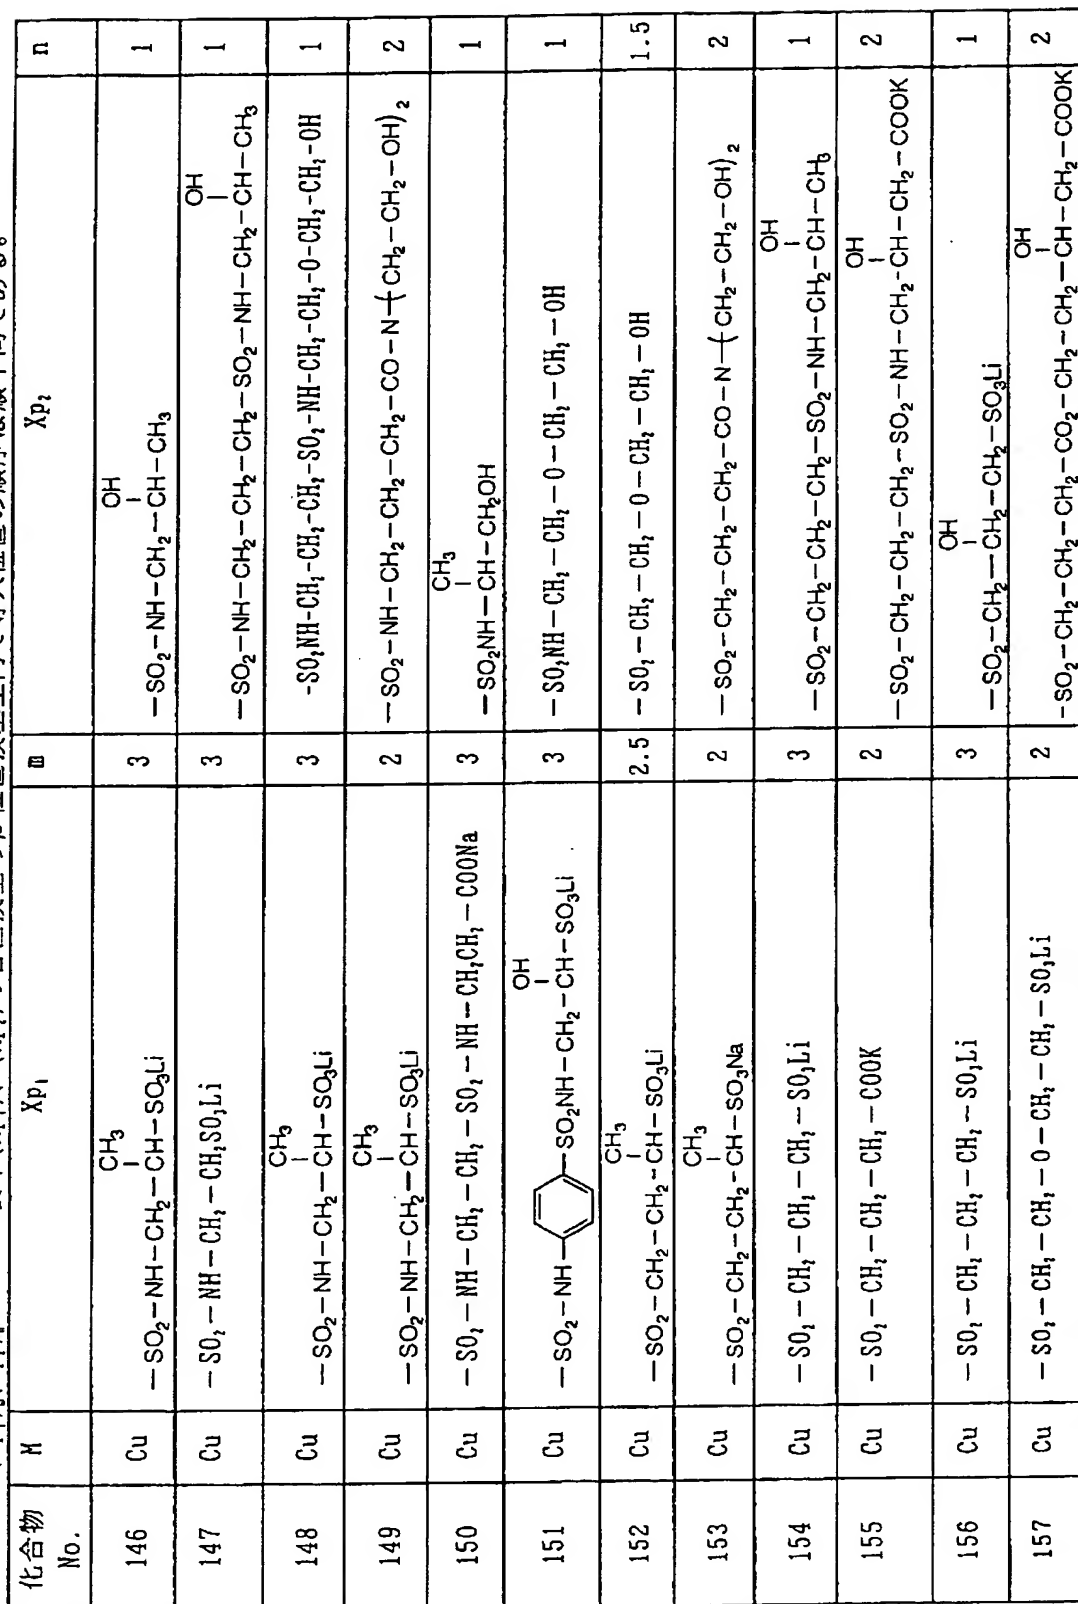 化合物 No. M Xp₁ m Xp₂ n
146 Cu —SO₂—NH—CH₂—CH(CH₃)—SO₃Li 3 —SO₂—NH—CH₂—CH(OH)—CH₃ 1
147 Cu —SO₂—NH—CH₂—CH₂SO₃Li 3 —SO₂—NH—CH₂—CH₂—CH₂—SO₂—NH—CH₂—CH(OH)—CH₃ 1
148 Cu —SO₂—NH—CH₂—CH(CH₃)—SO₃Li 3 -SO₂NH-CH₂-CH₂-CH₂-SO₂-NH-CH₂-CH₂-O-CH₂-CH₂-OH 1
149 Cu —SO₂—NH—CH₂—CH(CH₃)—SO₃Li 2 —SO₂—NH—CH₂—CH₂—CH₂—CO—N—(CH₂—CH₂—OH)₂ 2
150 Cu —SO₂—NH—CH₂—CH₂—SO₂—NH—CH₂CH₂—COONa 3 —SO₂NH—CH(CH₃)—CH₂OH 1
151 Cu —SO₂—NH— —SO₂NH—CH₂—CH(OH)—SO₃Li 3 —SO₂NH—CH₂—CH₂—O—CH₂—CH₂—OH 1
152 Cu —SO₂—CH₂—CH₂—CH(CH₃)—SO₃Li 2.5 —SO₂—CH₂—CH₂—O—CH₂—CH₂—OH 1.5
153 Cu —SO₂—CH₂—CH₂—CH(CH₃)—SO₃Na 2 —SO₂—CH₂—CH₂—CH₂—CO—N—(CH₂—CH₂—OH)₂ 2
154 Cu —SO₂—CH₂—CH₂—CH₂—SO₃Li 3 —SO₂—CH₂—CH₂—CH₂—SO₂—NH—CH₂—CH(OH)—CH₃ 1
155 Cu —SO₂—CH₂—CH₂—CH₂—COOK 2 —SO₂—CH₂—CH₂—CH₂—SO₂—NH—CH₂—CH(OH)—CH₂—COOK 2
156 Cu —SO₂—CH₂—CH₂—CH₂—SO₃Li 3 —SO₂—CH₂—CH(OH)—CH₂—SO₃Li 1
157 Cu —SO₂—CH₂—CH₂—O—CH₂—CH₂—SO₃Li 2 —SO₂—CH₂—CH₂—CH₂—CO₂—CH₂—CH₂—CH(OH)—CH₂—COOK 2